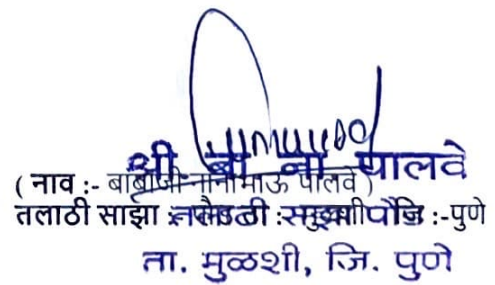 श्री. बा. ना. पालवे
( नाव :- बाबाजी नानाभाऊ पालवे )
तलाठी साझा :- पौड ता :- मुळशी जि :-पुणे
ता. मुळशी, जि. पुणे